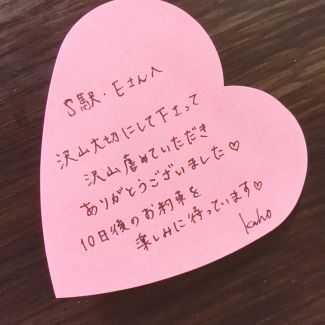 S駅・Eさんへ
沢山大切にして下さって
沢山虐めていただき
ありがとうございました♡
10日後のお約束を
楽しみに待っています♡
kaho